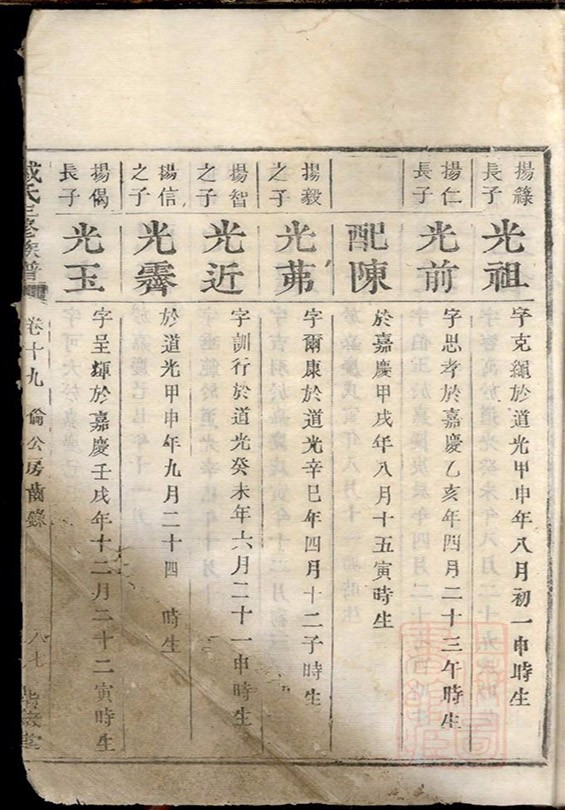 揚籙
長子
光祖
字克繩於道光甲申年八月初一申時生
揚仁
長子
光前
字思孝於嘉慶乙亥年四月二十三午時生
配陳
於嘉慶甲戌年八月十五寅時生
揚毅
之子
光茀
字爾康於道光辛巳年四月十二子時生
揚智
之子
光近
字訓行於道光癸未年六月二十一申時生
揚信
之子
光霽
於道光甲申年九月二十四 時生
揚偈
長子
光玉
字呈輝於嘉慶壬戌年十二月二十二寅時生
氏三修族譜
卷十九
倫公房齒錄
八七